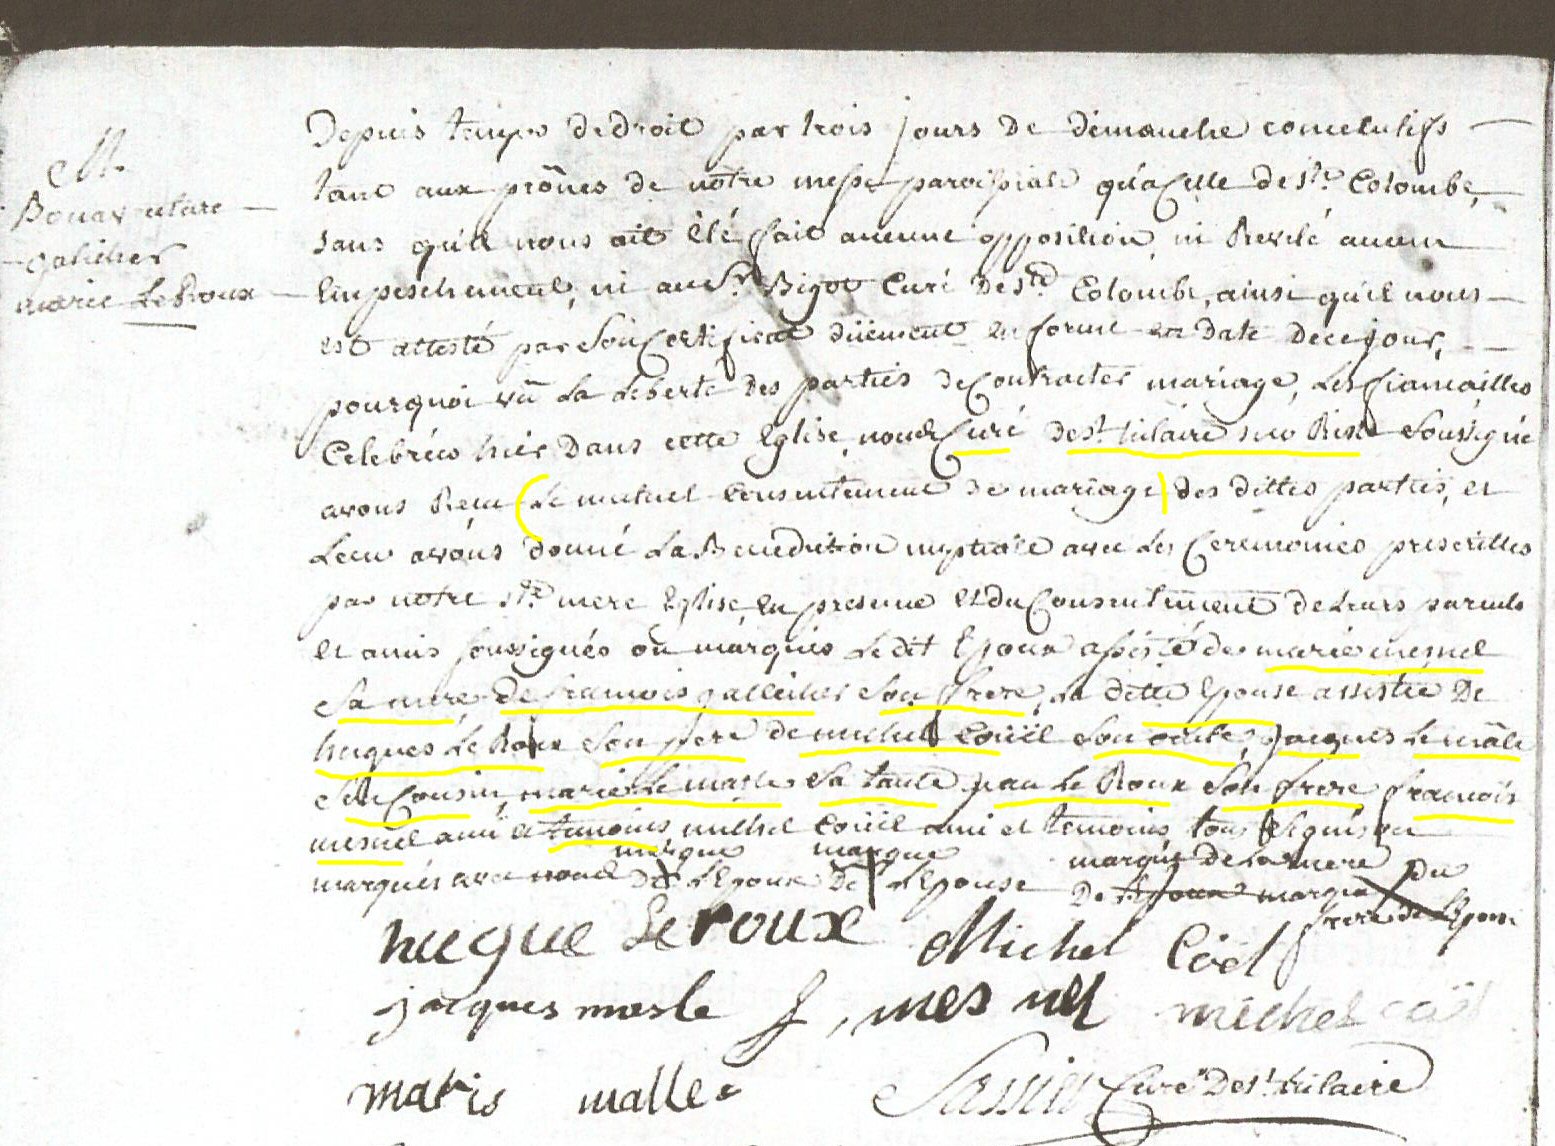 M.
Bonaventure
Galicher
marie Le Roux
Depuis temps de droit par trois jours de dimanche consecutifs
tant aux prônes de notre messe paroissiale qu'a celle de Ste Colombe,
sans qu'il nous ait été fait aucune opposition ni Revelé aucun
Empeschement, ni au Sr Bigot Curé de Ste Colombe, ainsi qu'il nous
est attesté par son Certificat düement en forme en date de ce jour,
pourquoi vû La Liberté des parties de Contracter mariage, Les fiançailles
Celebrées hier Dans cette Eglise, nous Curé de St hilaire sur Risle soussigné
avons Reçu Le mutuel consentement de mariage des dittes parties, et
Leur avons donné La Benediction nuptiale avec Les Ceremonies prescrittes
par notre Ste mere Eglise, en presence et du Consentement de Leurs parents
et amis soussignés ou marqués Le dit Epoux assisté de marie mesnel
Sa mere de francois galleicher Son frere, La ditte Epouse assistée De
hugues Le Roux Son pere de michel Coüel Son oncle, Jacques Le mâle
Son Cousin, marie Le masle Sa tante jean Le Roux Son frere francois
mesnel ami et temoins michel Coüel ami et temoins, tous signés ou
marqués avec nous marque De L'Epoux marque De L'Epouse marque de la mere
De L'Epoux marque du
frere de L'Epoux
hugue Le roux Michel Coël
jacques masle f, mes nel michel coël
maris malle
Curé De St hilaire